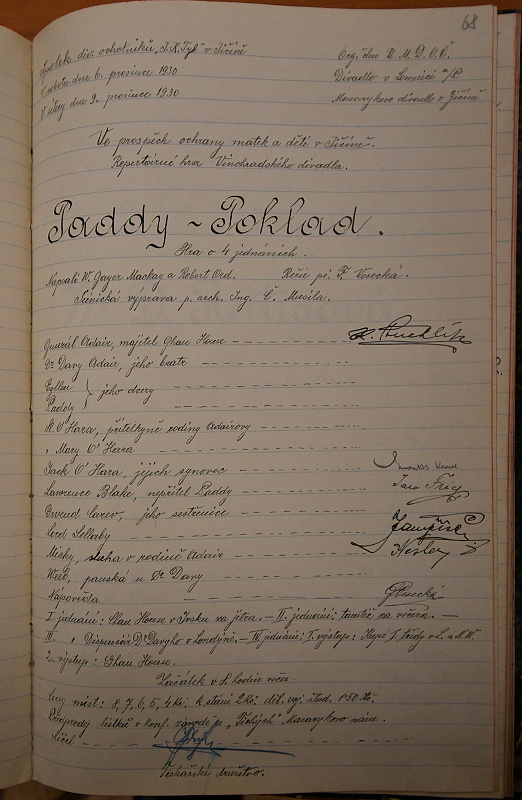 68
Spolek div. ochotníků „J. K. Tyl“ v Jičíně
V sobotu dne 6. prosince 1930
V úterý dne 9. prosince 1930
Org. člen Ú. M. D. O. Č.
Divadlo v Lomnici n/P.
Masarykovo divadlo v Jičíně
Ve prospěch ochrany matek a dětí v Jičíně.
Repertoirní hra Vinohradského divadla.
Paddy ~ Poklad.
Hra o 4 jednáních.
Napsali W. Gayer Mackay a Robert Ord. Režie pí. F. Vesecká.
Scénická výprava p. arch. Ing. Č. Musila.
Generál Adair, majitel Ghan House
Dr Davy Adair, jeho bratr
Eillen
Paddy
jeho dcery
O'Hara, přítelkyně rodiny Adairovy
„ Mary O'Hara
Jack O'Hara, jejich synovec
Lawrence Blake, nepřítel Paddy
Gwend Carew, jeho sestřenice
Lord Sellaby
Micky, sluha v rodině Adair
Webb, panská u Dr Davy
Nápověda
I. jednání: Ghan House v Irsku na jitra. – II. jednání: tamtéž na večera. –
III. „ Dispensář Dr Davyho v Londýně. – IV. jednání: 1. výstup:
2. výstup: Ghan House.
Začátek v 8. hodin večer.
Ceny míst: 8, 7, 6, 5, 4 Kč. k stání 2 Kč. děl. voj. stud. 1·50 Kč.
Předprodej lístků v konf. závodě p. Masarykovo nám.